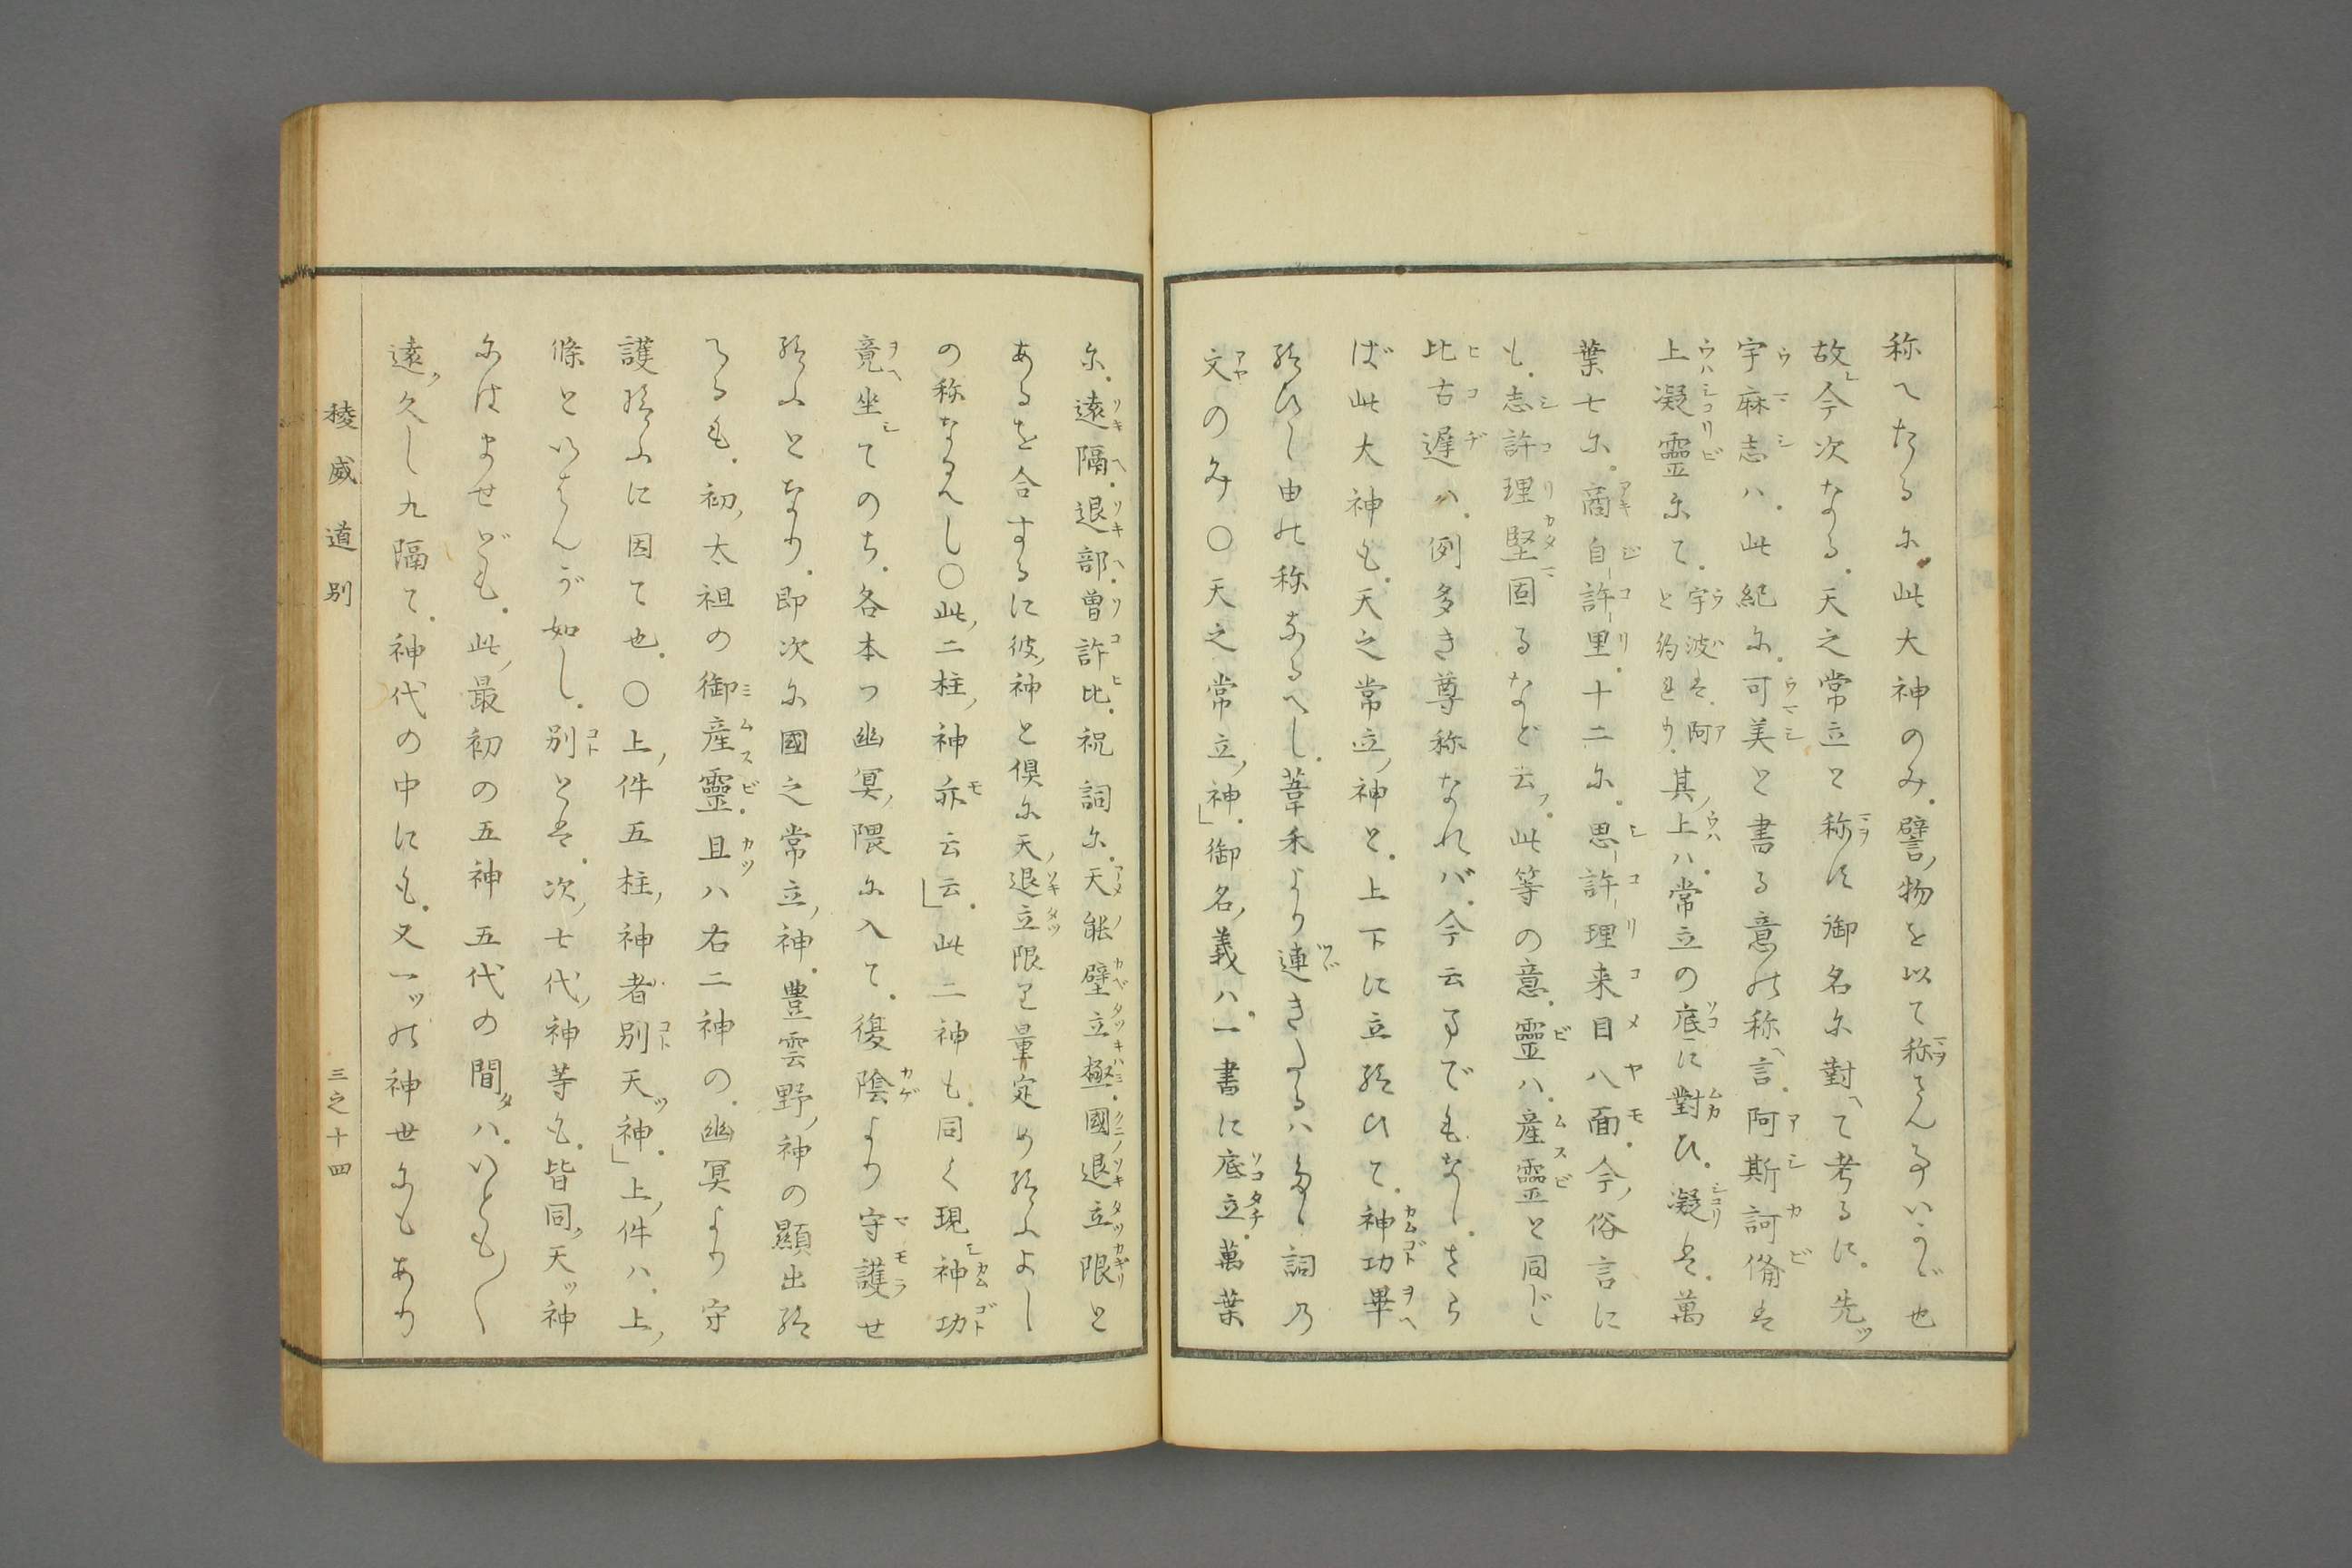 称へたるに。此大神のみ。譬ノ物を以て称さん事いかゞ也
故レ今次なる。天之常立と称す御名に對ヘて考るに。先ヅ
宇麻志ハ。此紀に。可美と書る意の称ヘ言。阿斯訶備は
上凝靈にて。宇波は。阿と約まり。其ノ上ハ。常立の底に對ひ。凝は。萬
葉七に。商自許里。十二に。思許理来目八面。今ノ俗言に
も。志許理堅固るなど云フ。此等の意。靈ハ。産靈と同じ
比古遅ハ。例多き尊称なれバ。今云までもなし。さら
ば此大神も。天之常立ノ神と。上下に立給ひて。神功畢
給ひし由の称なるへし。葦禾より連きたるハ多く詞乃
文のみ〇天之常立ノ神」。御名ノ義ハ。一書に底立。萬葉
に。遠隔。退部。曽許比。祝詞に。天能壁立極。國退立限と
あるを合するに彼ノ神と倶に天ノ退立限を量定め給ふよし
の称なるべし〇此ノ二柱ノ神亦云云」。此二神も。同く現神功
竟坐シてのち。各本つ幽冥ノ隈に入て。復陰より守護せ
給ふとなり。即次に國之常立ノ神。豊雲野ノ神の顯出給
へるも。初ノ太祖の御産靈。且ハ右二神の。幽冥より守
護給ふに因て也。〇上ノ件五柱ノ神者別天ツ神」。上ノ件ハ。上ノ
條といはんが如し。別とは。次ノ七代ノ神等も。皆同ノ天ツ神
にはませども。此ノ最初の五神五代の間タハ。いとも〱
遠ク久しク隔て。神代の中にも。又一ツの神世にもあり
稜威道別
三之十四